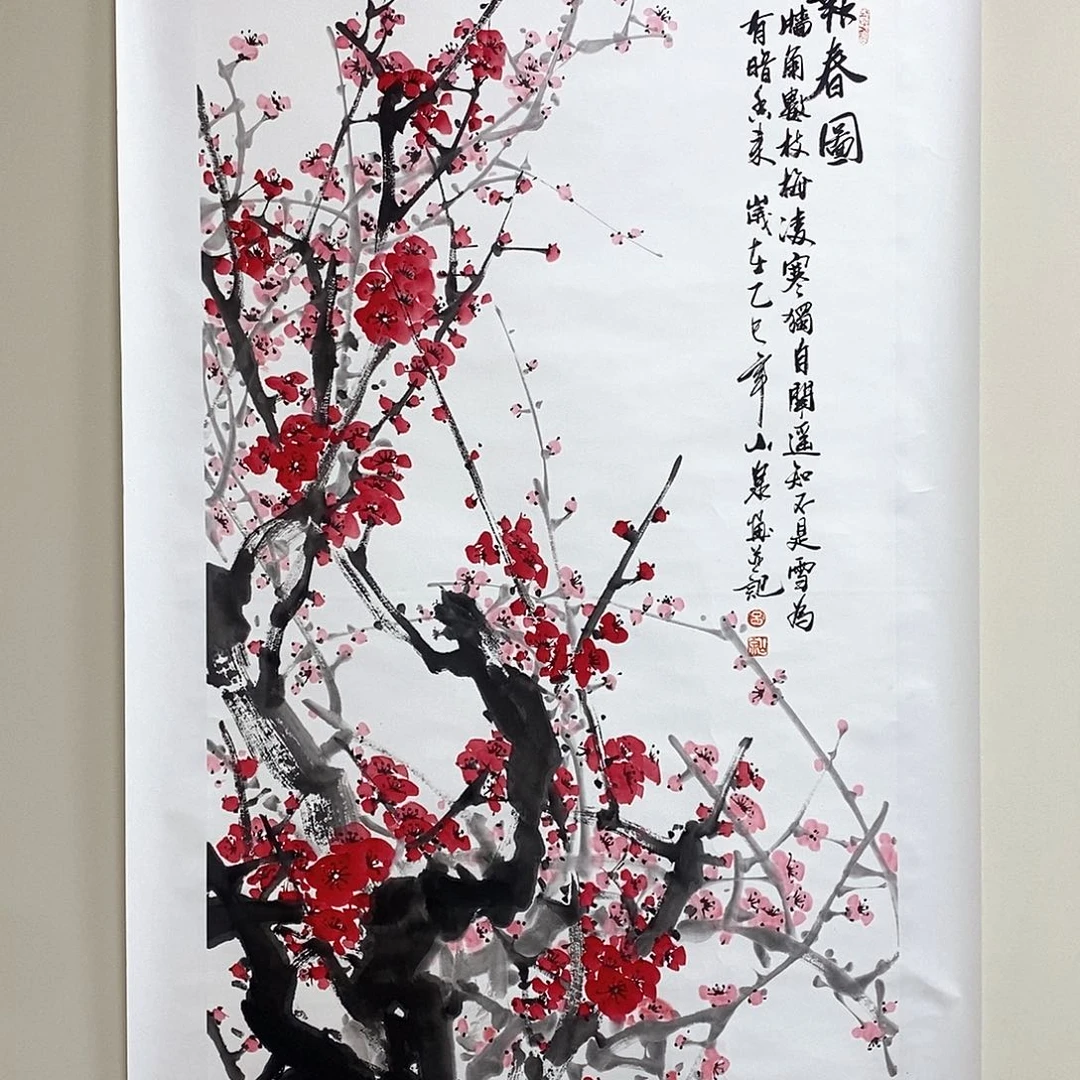 報春圖
牆角數枝梅凌寒獨自開遥知不是雪為
有暗香来 歲在乙巳年山泉 並記